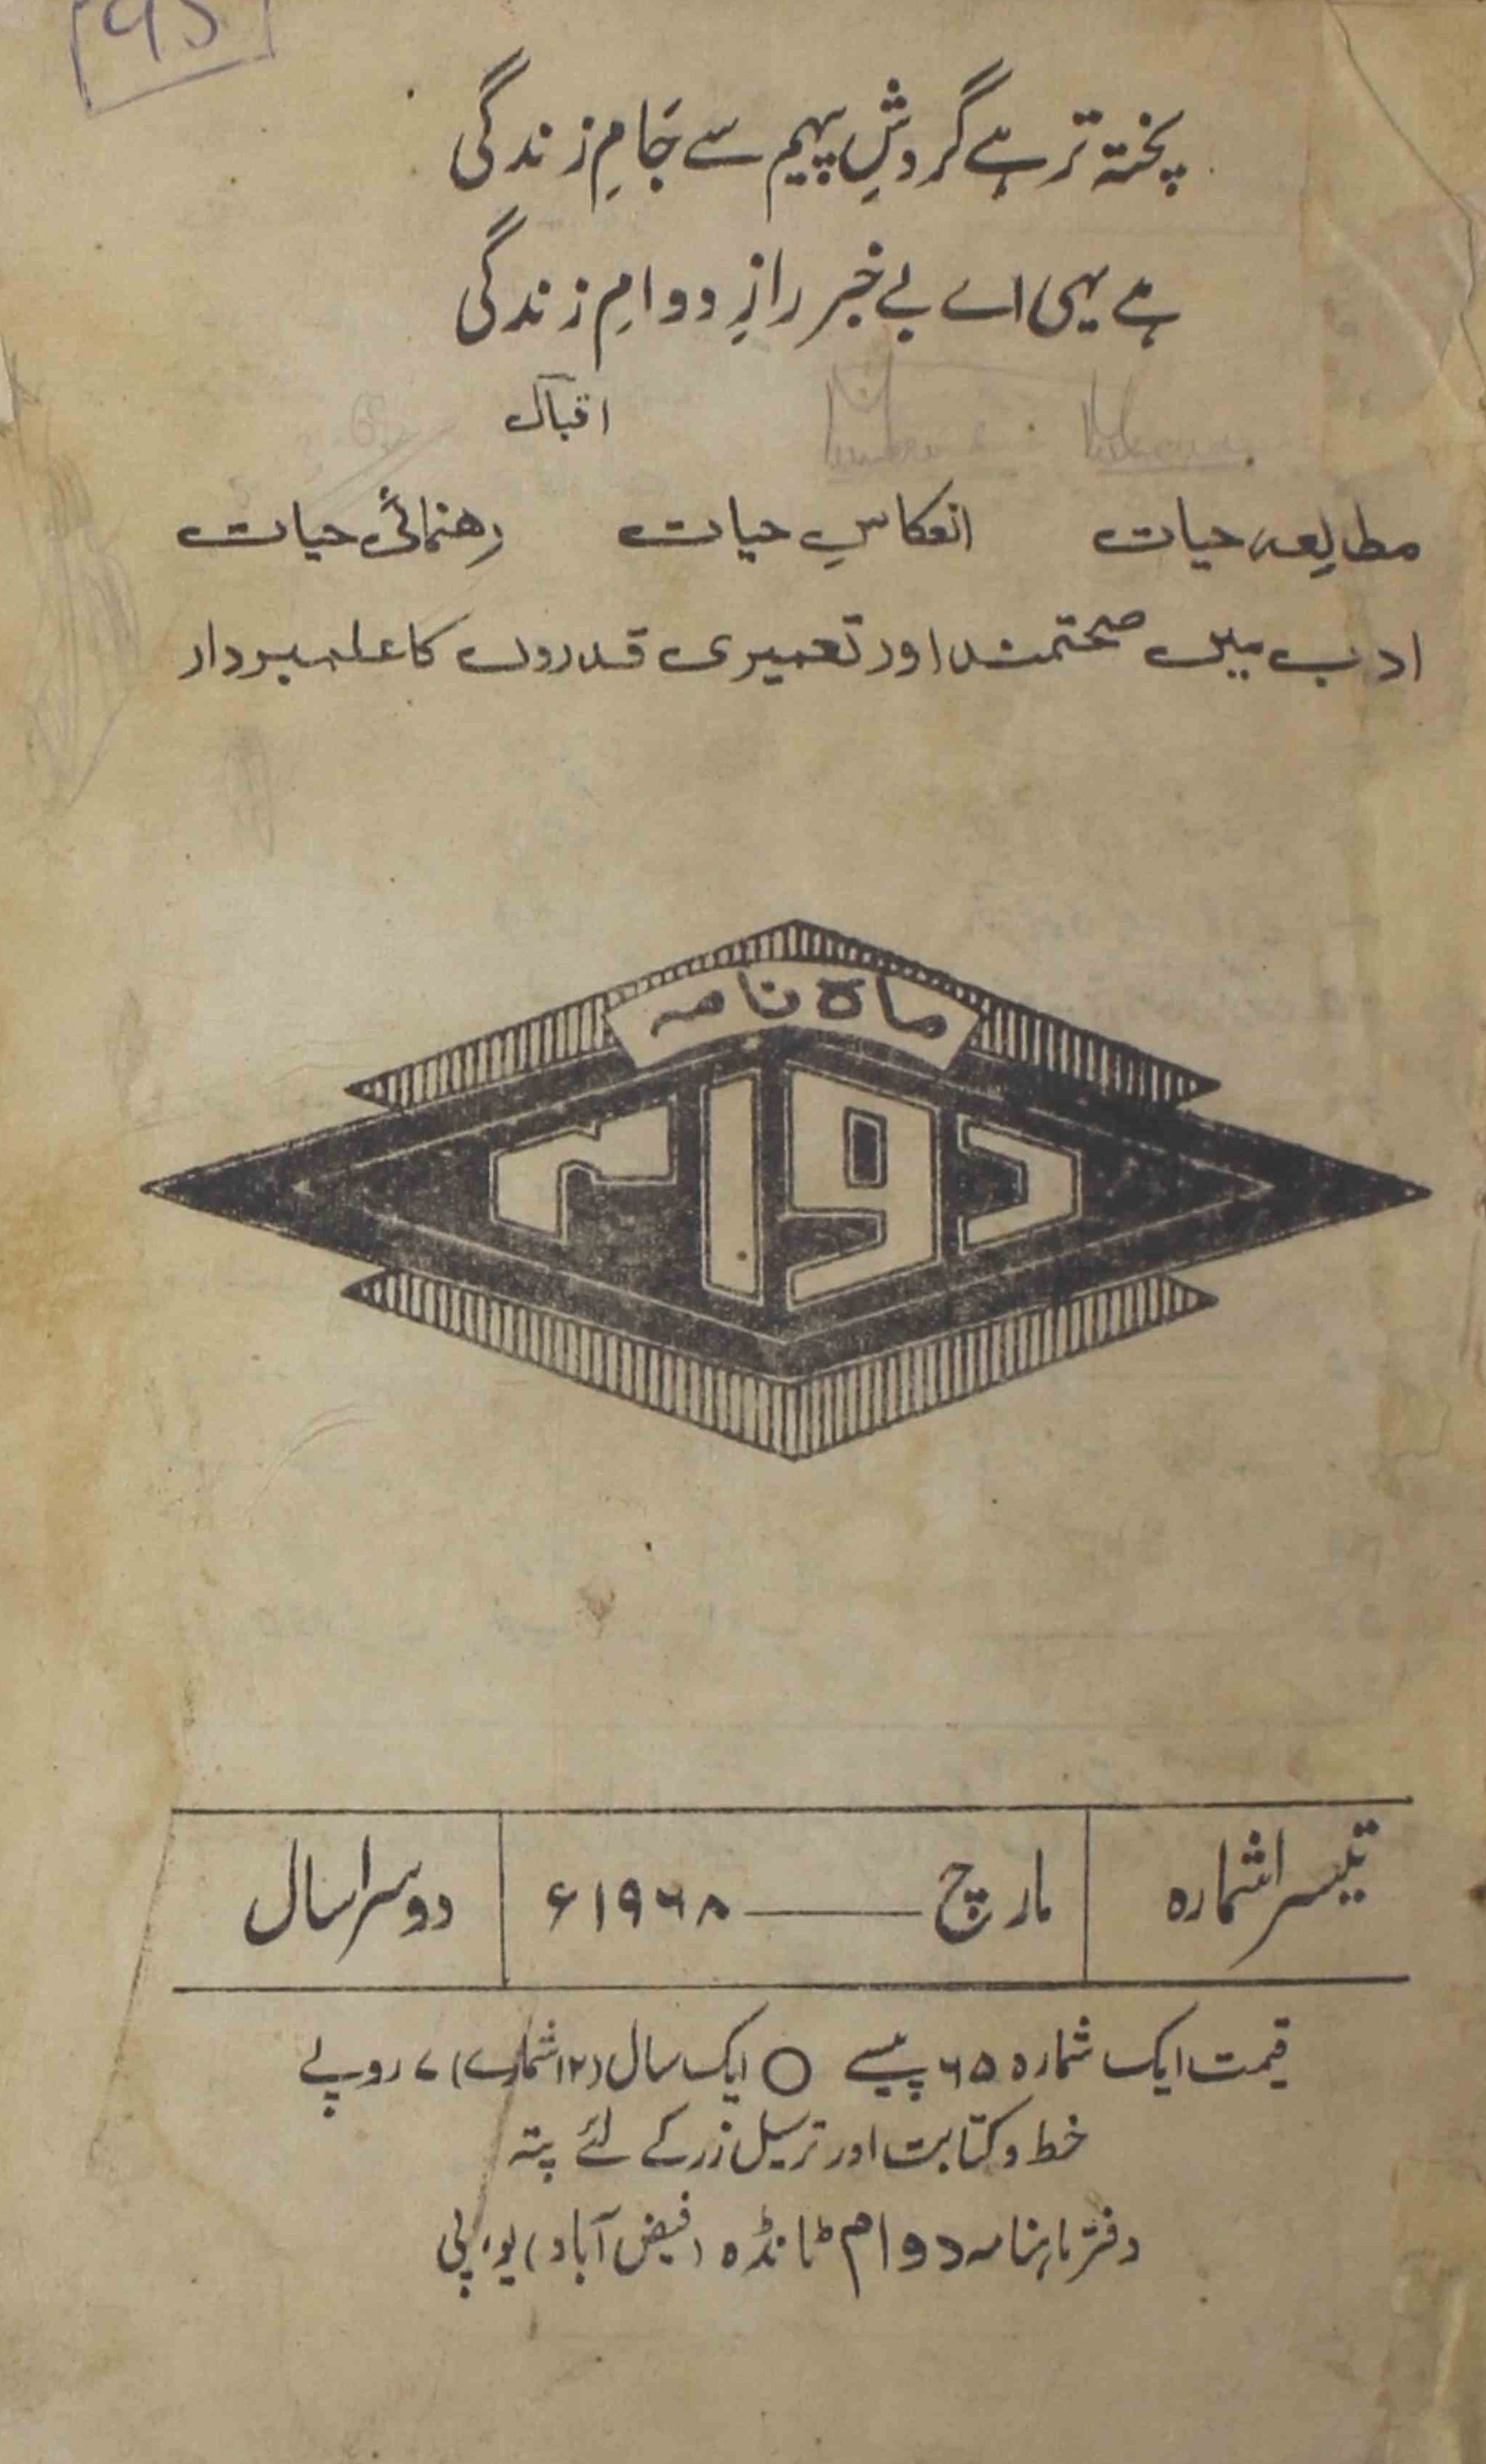 95
پختہ تر ہے گردشِ پیہم سے جَامِ زندگی
ہے یہی اے بے خبر رازِ دوامِ زندگی
اقبال
مطالعہ حیات انعکاسِ حیات رهنمائی حیات
ادب میں صحتمند اور تعمیری قدروں کا علمبردار
ماہ نامہ
دوام
تیسرا شمارہ مارچ ——— ۱۹۶۸ء دوسرا سال
قیمت ایک شمارہ ۶۵ پیسے ○ ایک سال (۱۲ شمارے) ۷ روپے
خط و کتابت اور ترسیل زر کے لئے پتہ
دفتر ماہنامہ دوام ٹانڈہ (فیض آباد) یو، پی